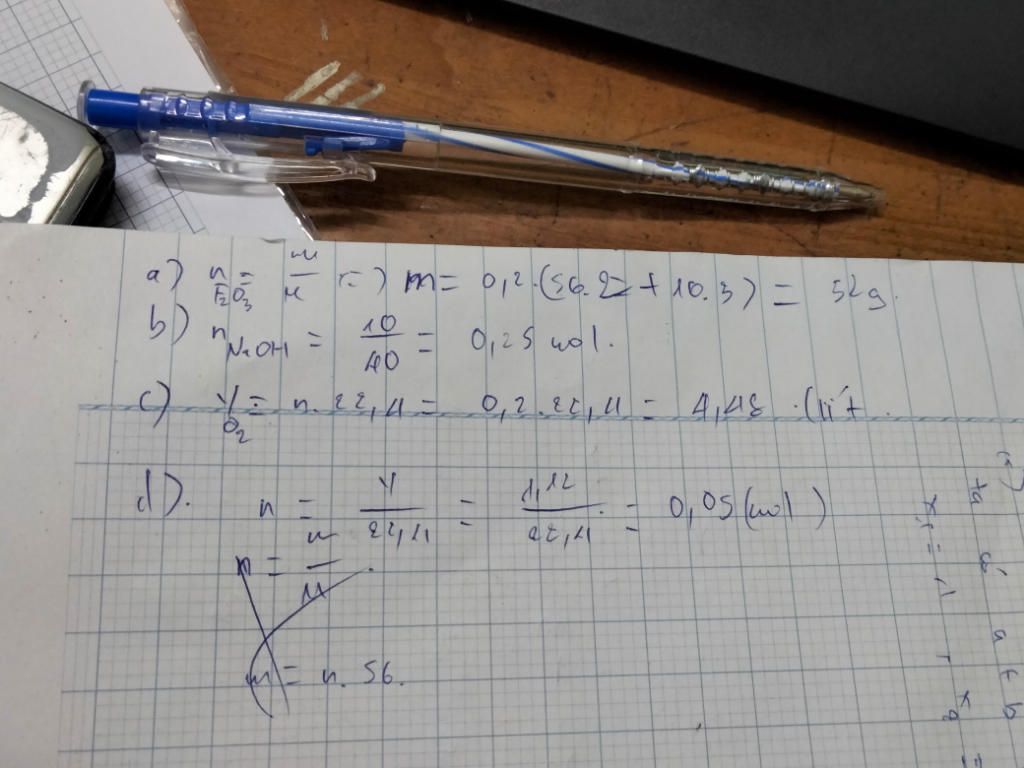 a) n Fe2O3 = m/M => m = 0,2.(56.2 + 10.3) = 52g.
b) n NaOH = 10/40 = 0,25 mol.
c) V O2 = n.22,4 = 0,2.22,4 = 4,48 (lít
d). n = V/22,4 = 1,12/22,4 = 0,05 (mol)
n = m/M
m = n. 56.